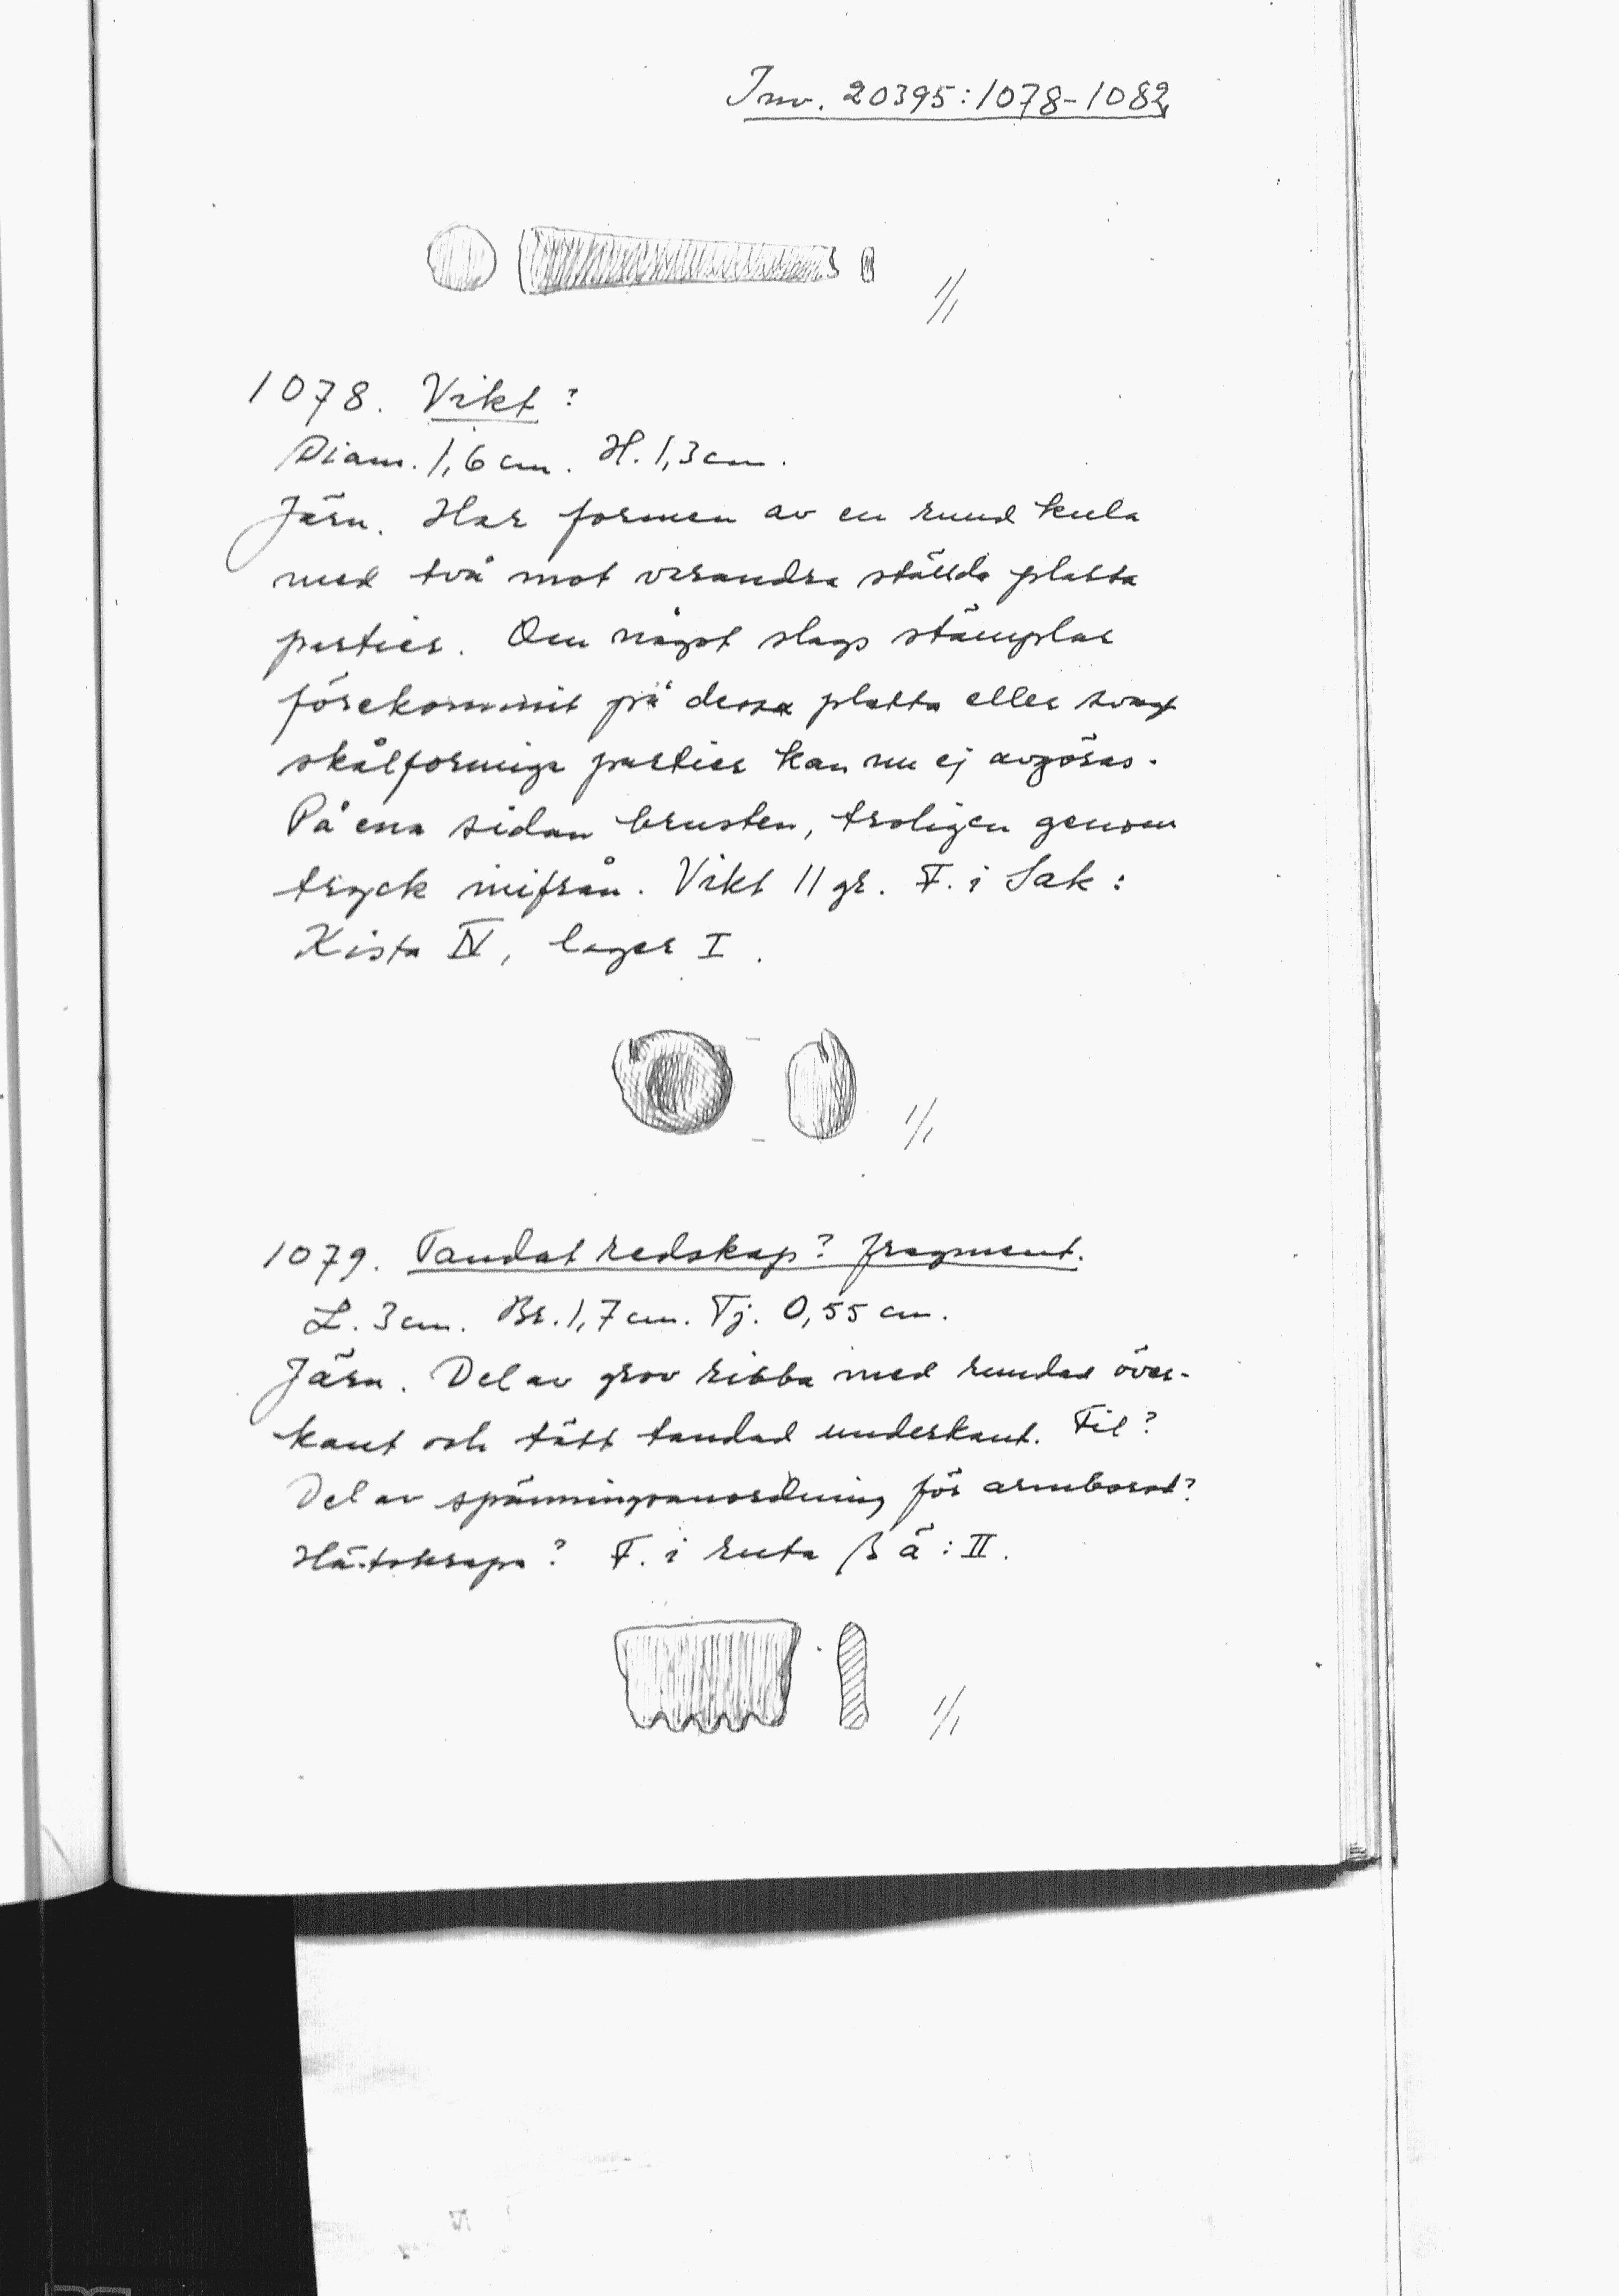 Inv. 20395:1078-1082
1/1
1078. Vikt?
Diam. 1,6 cm. H. 1,3 cm.
Järn. Har formen av en rund kula
med två mot varandra ställda platta
partier. Om något slags stämplar
förekommit på dessa platta eller svagt
skålformiga partier kan nu ej avgöras.
På ena sidan brusten, troligen genom
tryck inifrån. Vikt 11 gr. F. i Sak:
Kista IV, lager I.
1/1
1079. Tandat redskap? fragment.
L. 3 cm. Br. 1,7 cm. Tj. 0,55 cm.
Järn. Del av grov ribba med rundad över-
kant och tätt tandad underkant. Fil?
Del av spänningsanordning för armborst?
Hästskrapa? F. i ruta ß ä: II.
1/1